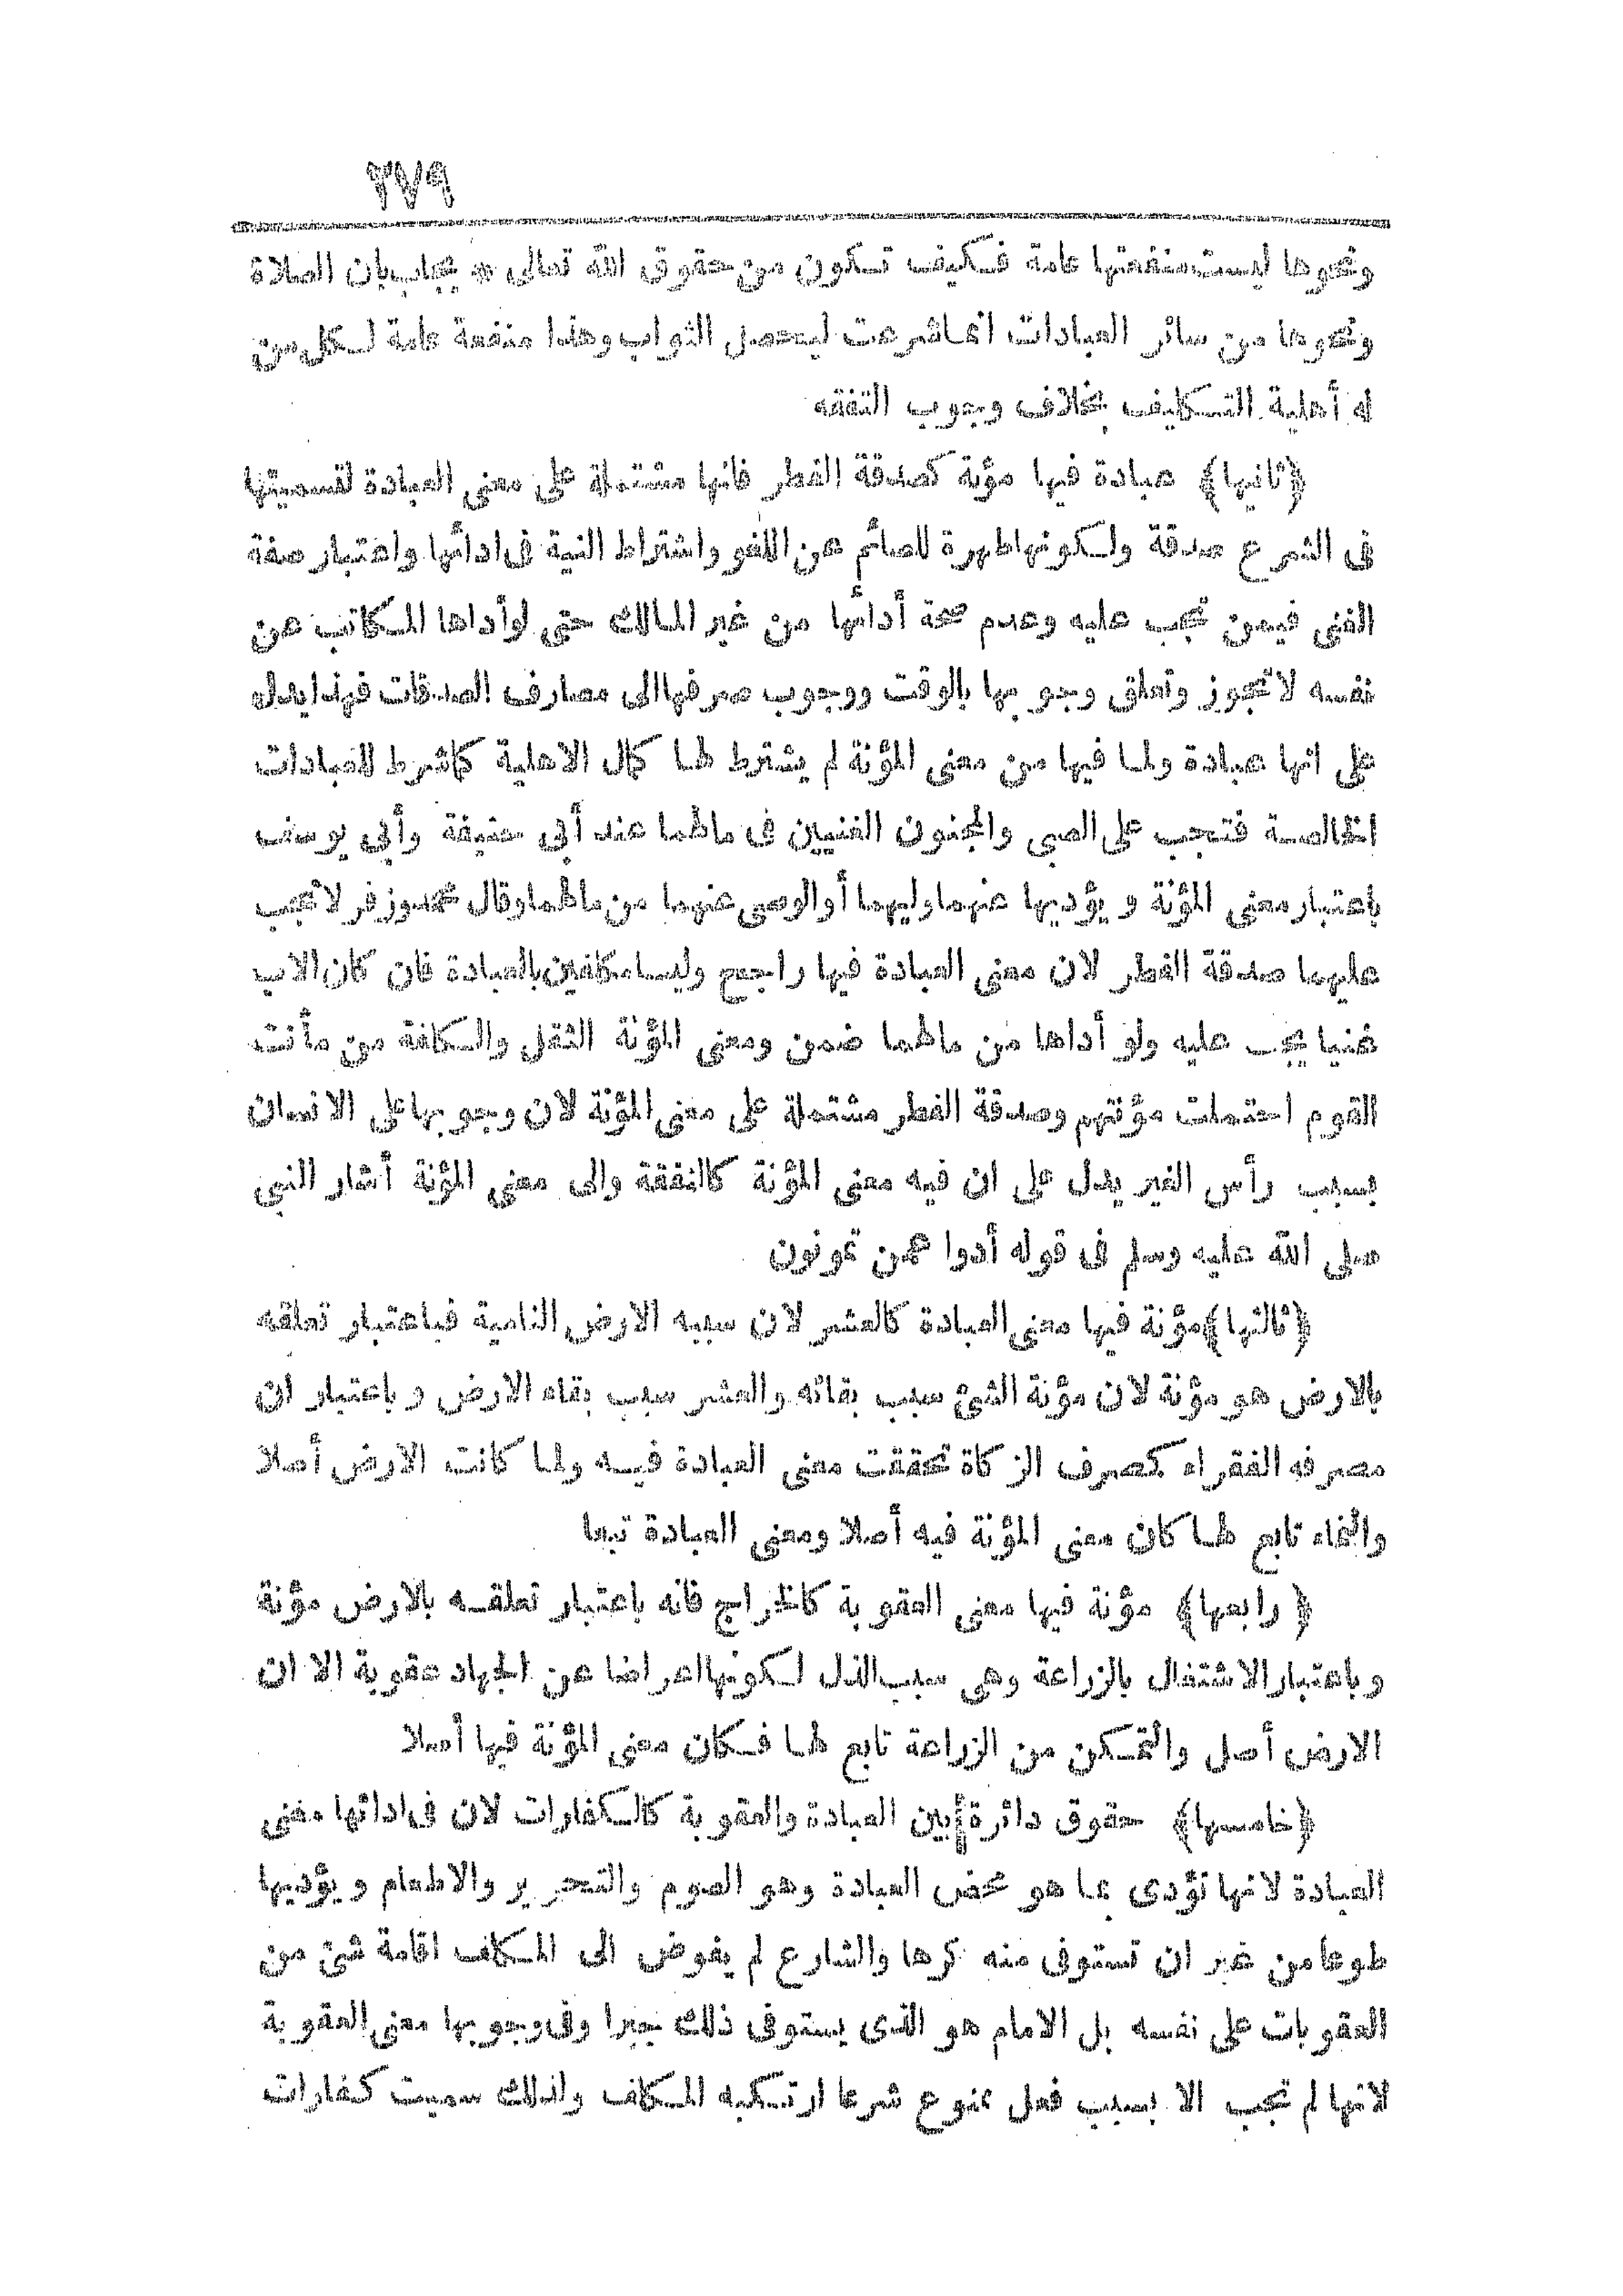 ٣٧٩
ونحوها ليست منفعتها عامة فكيف تكون من حقوق الله تعالى * يجاب بان الصلاة
ونحوها من سائر العبادات انما شرعت ليحصل الثواب وهذا منفعة عامة لكل من
له أهلية التكليف بخلاف وجوب التفقه
﴿ثانيها﴾ عبادة فيها مؤنة كصدقة الفطر فانها مشتملة على معنى العبادة لتسميتها
فى الشرع صدقة ولكونها طهرة للصائم عن اللغو واشتراط النية فى ادائها واعتبار صفة
الغنى فيمن تجب عليه وعدم صحة أدائها من غير المالك حتى لو أداها المكاتب عن
نفسه لا تجوز وتعلق وجوبها بالوقت ووجوب صرفها الى مصارف الصدقات فهذا يدل
على انها عبادة ولما فيها من معنى المؤنة لم يشترط لها كمال الاهلية كما شرط للعبادات
الخالصة فتجب على الصبى والمجنون الغنيين فى مالهما عند أبى حنيفة وأبى يوسف
باعتبار معنى المؤنة ويؤديها عنهما وليهما أو الوصى عنهما من مالهما وقال محمد وزفر لا تجب
عليهما صدقة الفطر لان معنى العبادة فيها راجح وليسا مكلفين بالعبادة فان كان الاب
غنيا يجب عليه ولو أداها من مالهما ضمن ومعنى المؤنة الثقل والكلفة من مأنت
القوم احتملت مؤنتهم وصدقة الفطر مشتملة على معنى المؤنة لان وجوبها على الانسان
بسبب رأس الغير يدل على ان فيه معنى المؤنة كالنفقة والى معنى المؤنة أشار النبى
صلى الله عليه وسلم فى قوله أدوا عمن تمونون
﴿ثالثها﴾ مؤنة فيها معنى العبادة كالعشر لان سببه الارض النامية فباعتبار تعلقه
بالارض هو مؤنة لان مؤنة الشئ سبب بقائه والعشر سبب بقاء الارض وباعتبار ان
مصرفه الفقراء كمصرف الزكاة تحققت معنى العبادة فيه ولما كانت الارض أصلا
والنماء تابع لها كان معنى المؤنة فيه أصلا ومعنى العبادة تبعا
﴿رابعها﴾ مؤنة فيها معنى العقوبة كالخراج فانه باعتبار تعلقه بالارض مؤنة
وباعتبار الاشتغال بالزراعة وهى سبب الذل لكونها اعراضا عن الجهاد عقوبة الا ان
الارض أصل والتمكن من الزراعة تابع لها فكان معنى المؤنة فيها أصلا
﴿خامسها﴾ حقوق دائرة بين العبادة والعقوبة كالكفارات لان فى ادائها معنى
العبادة لانها تؤدى بما هو محض العبادة وهو الصوم والتحرير والاطعام ويؤديها
طوعا من غير ان تستوفى منه كرها والشارع لم يفوض الى المكلف اقامة شئ من
العقوبات على نفسه بل الامام هو الذى يستوفى ذلك جبرا وفى وجوبها معنى العقوبة
لانها لم تجب الا بسبب فعل ممنوع شرعا ارتكبه المكلف ولذلك سميت كفارات